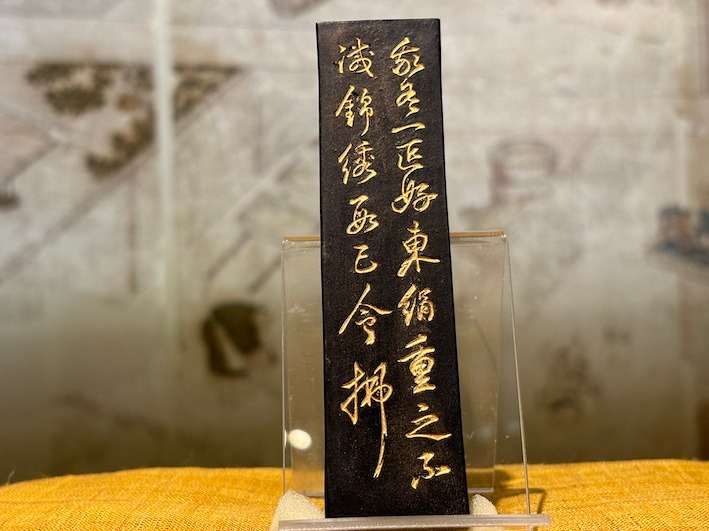 我有一匹好東絹重之不
減錦綉段已令拂